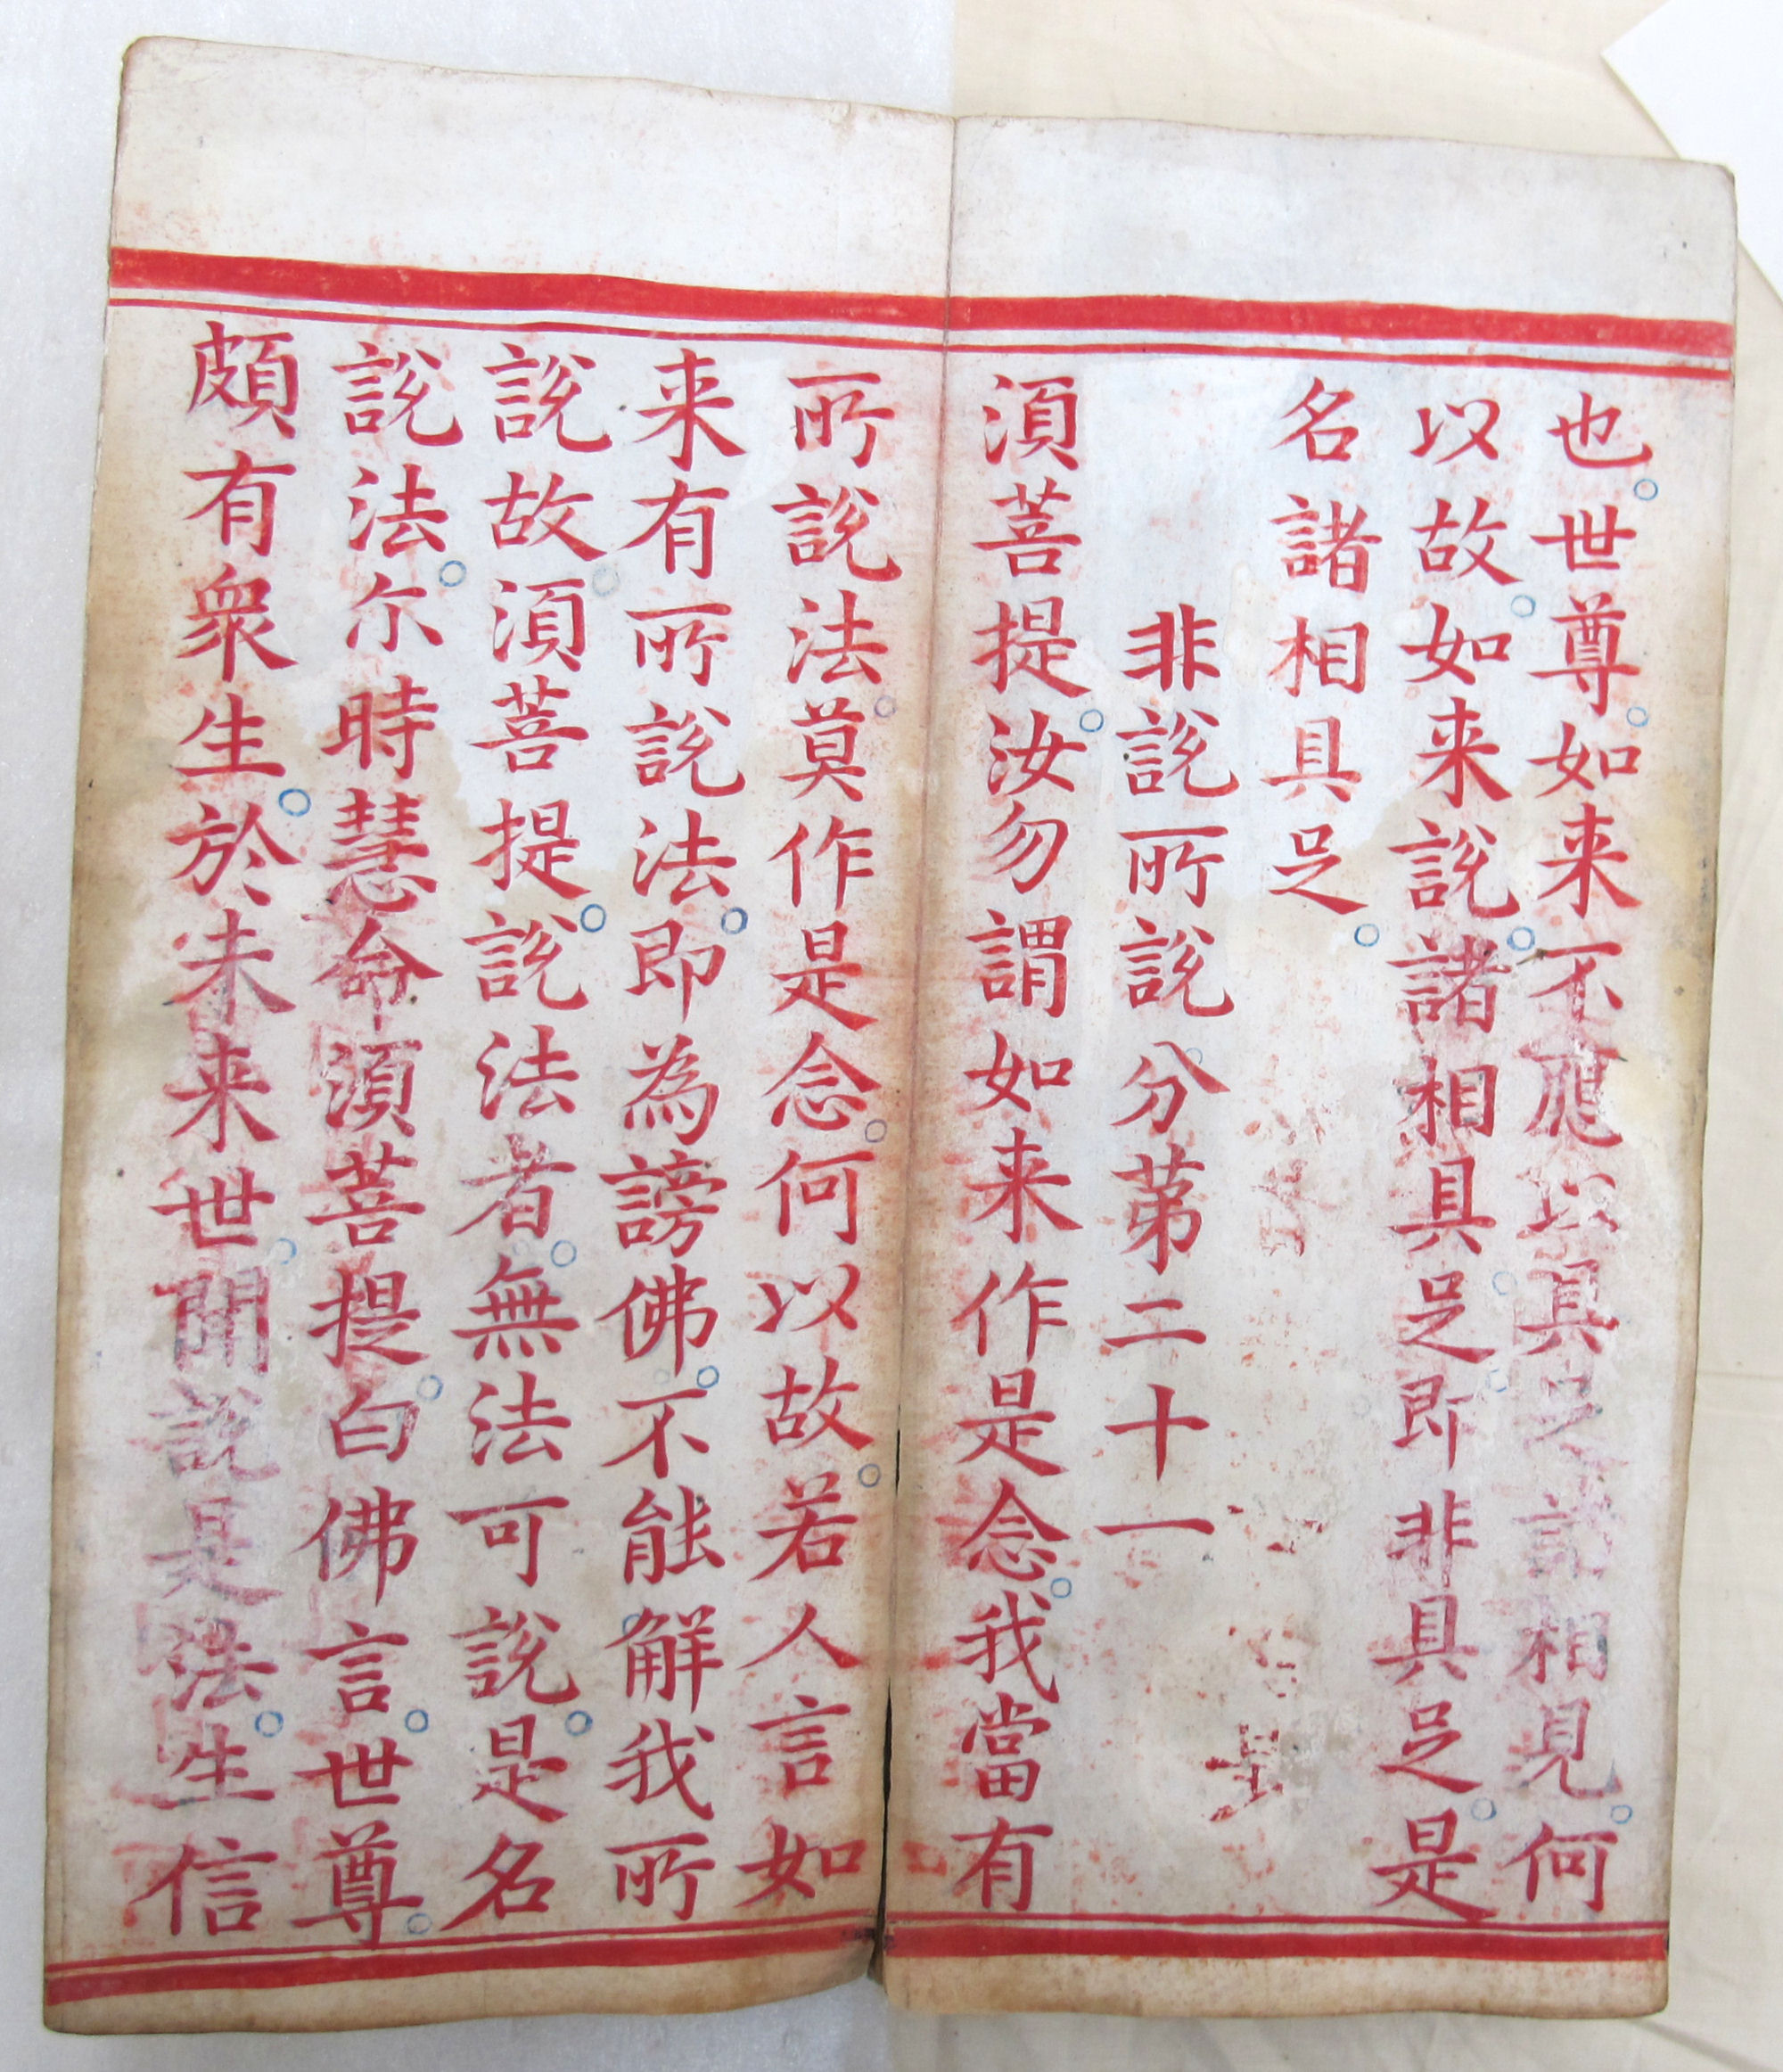 也世尊如来不應以具足諸相見何
以故如来說諸相具足即非具足是
名諸相具足
非說所說分第二十一
須菩提汝勿謂如来作是念我當有
所說法莫作是念何以故若人言如
来有所說法即為謗佛不能解我所
說故須菩提說法者無法可說是名
說法尔時慧命須菩提白佛言世尊
頗有眾生於未来世聞說是法生信